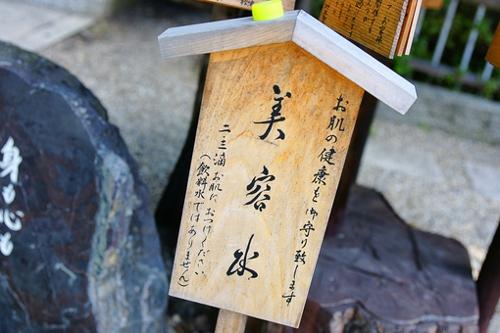 お肌の健康を御守り致します
美容水
二・三滴お肌におつけください
(飲料水ではありません)
身も心も